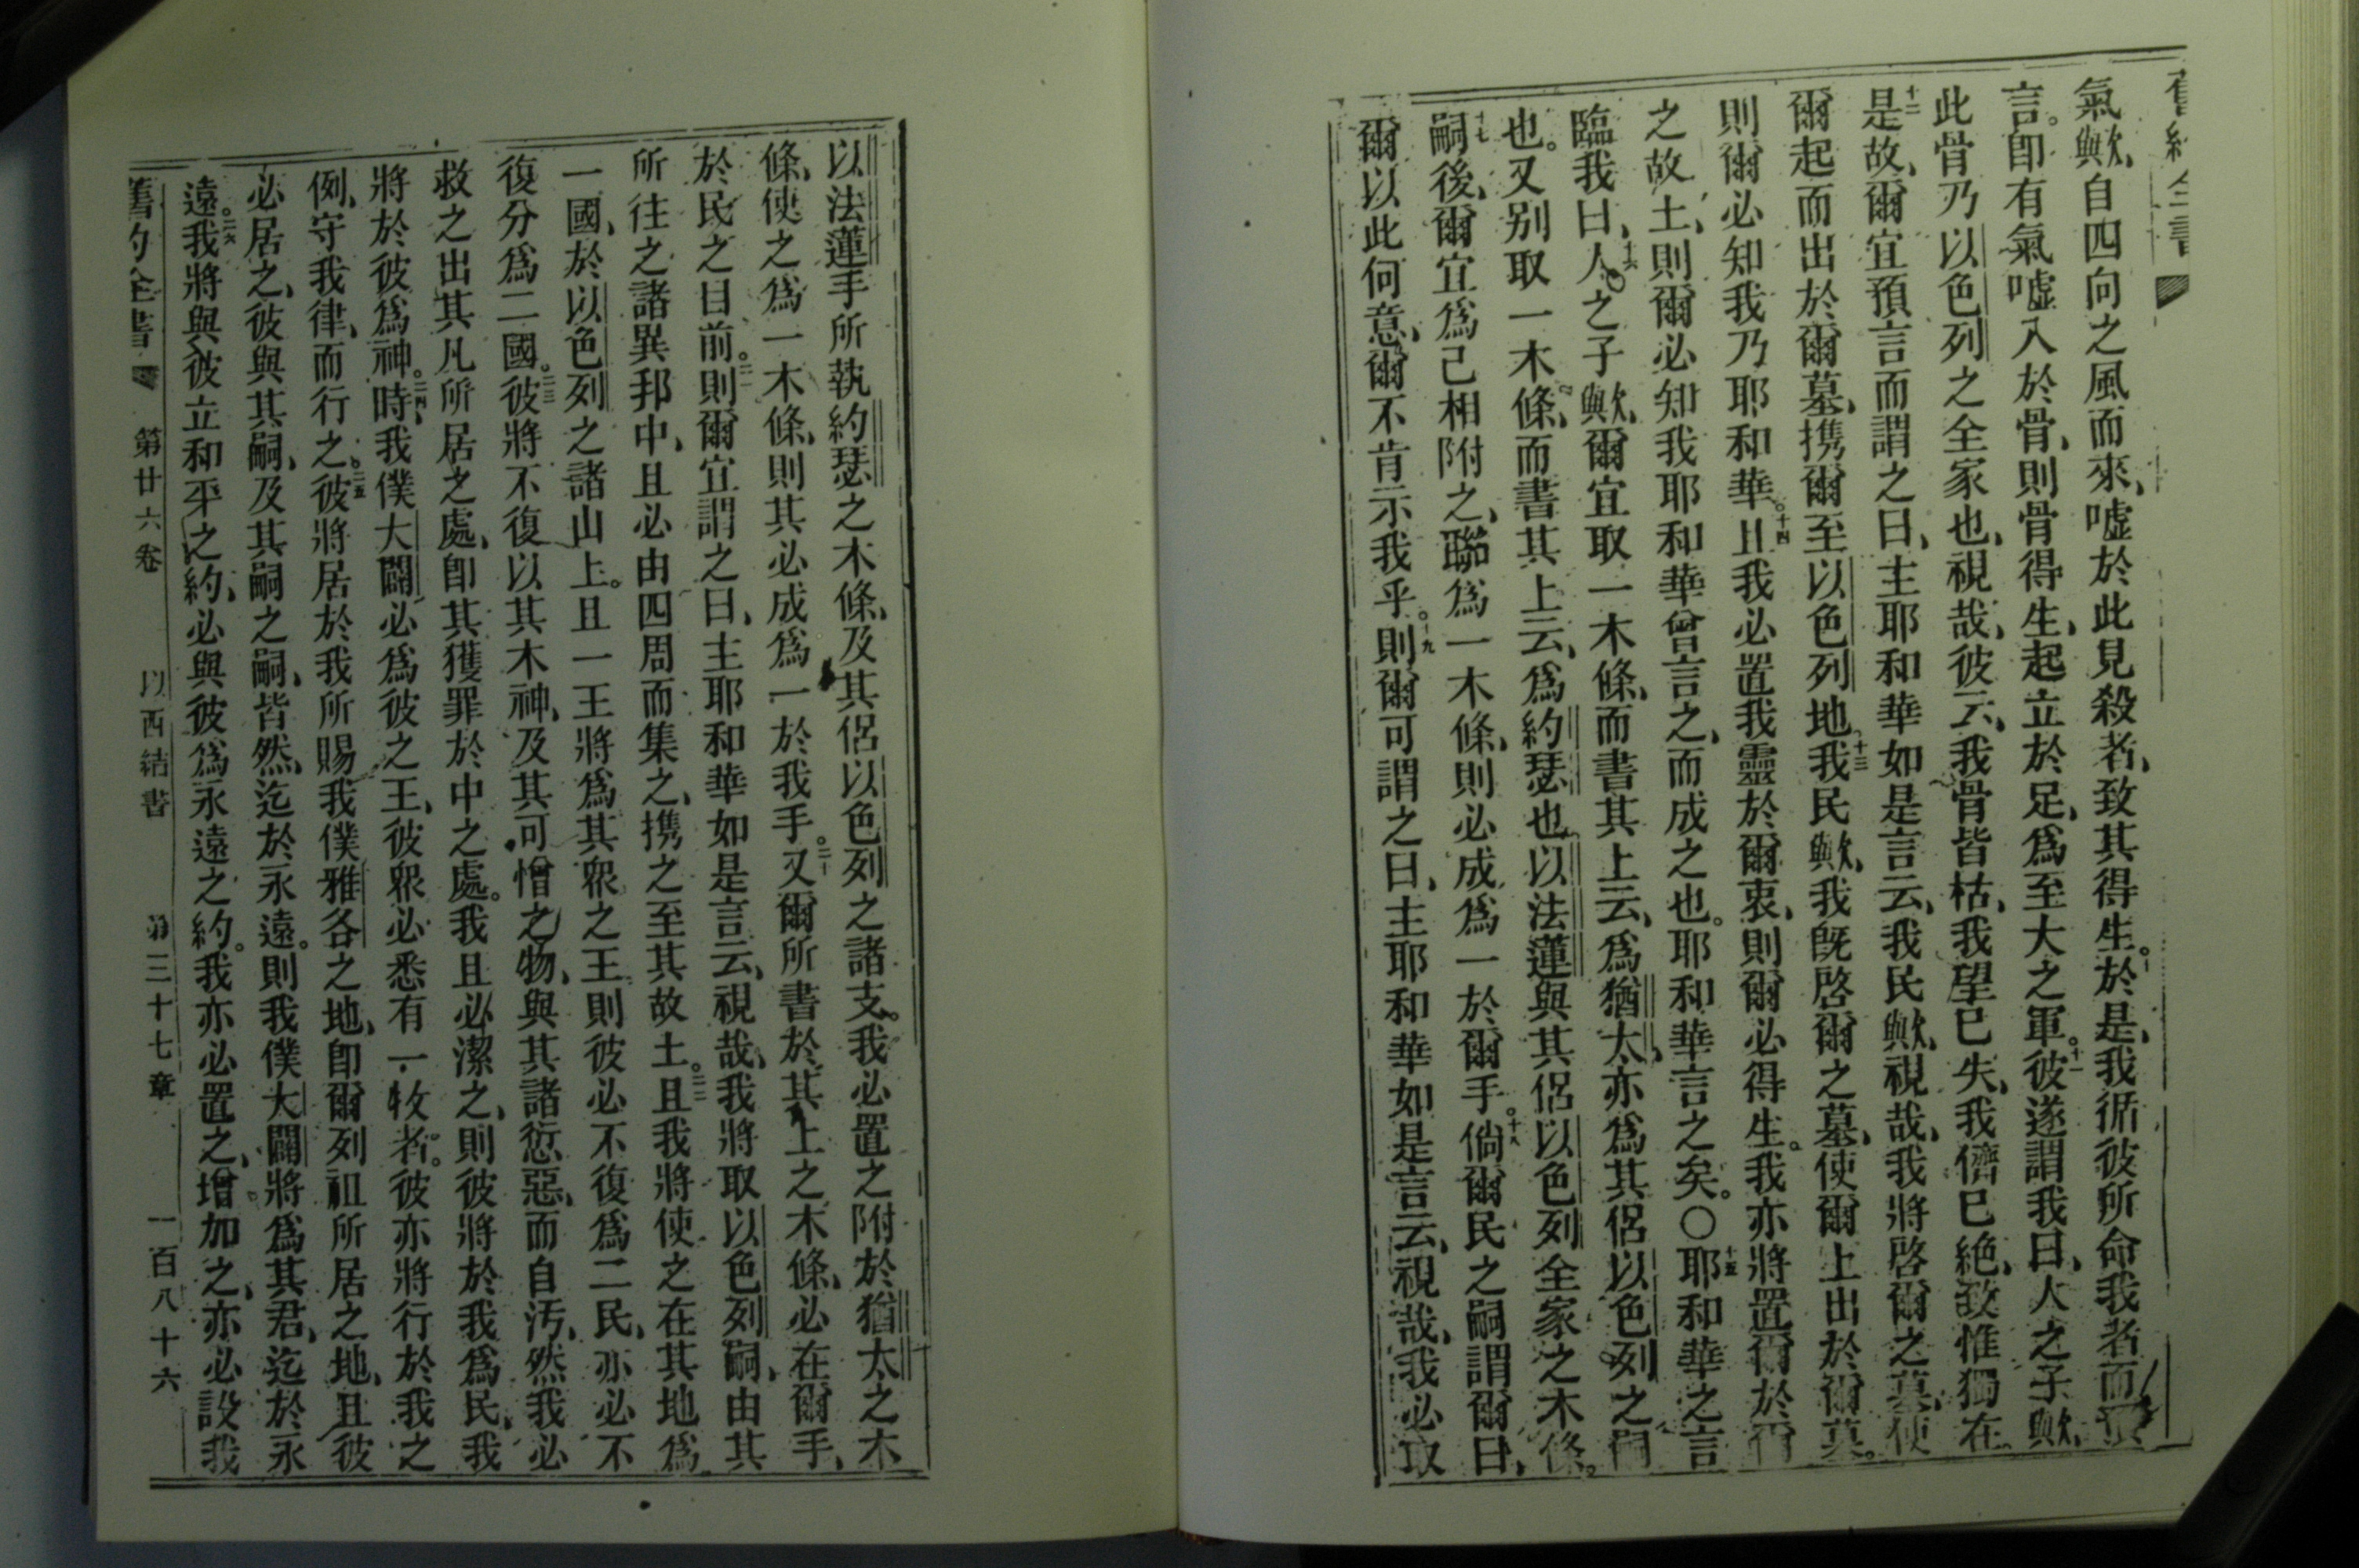 舊約全書
氣歟、自四向之風而來、噓於此見殺者、致其得生。十於是、我循彼所命我者而預
言。卽有氣噓入於骨、則骨得生、起立於足、爲至大之軍。十一彼遂謂我曰、人之子歟、
此骨乃以色列之全家也、視哉、彼云、我骨皆枯、我望已失、我儕已絕、致惟獨在。
十二是故、爾宜預言而謂之曰、主耶和華如是言云、我民歟、視哉、我將啓爾之墓、使
爾起而出於爾墓、携爾至以色列地。十三我民歟、我旣啓爾之墓、使爾上出於爾墓。
則爾必知我乃耶和華。十四且我必置我靈於爾衷、則爾必得生。我亦將置爾於爾
之故土、則爾必知我耶和華曾言之、而成之也。耶和華言之矣。〇十五耶和華之言
臨我曰、十六人之子歟、爾宜取一木條、而書其上云、爲猶太、亦爲其侶以色列之嗣
也。又別取一木條、而書其上云、爲約瑟也、以法蓮與其侶以色列全家之木條。
十七嗣後、爾宜爲己相附之、聯爲一木條、則必成爲一於爾手。十八倘爾民之嗣謂爾曰、
爾以此何意、爾不肯示我乎。十九則爾可謂之曰、主耶和華如是言云、視哉、我必取
以法蓮手所執約瑟之木條、及其侶以色列之諸支。我必置之附於猶太之木
條、使之爲一木條、則其必成爲一於我手。二十又爾所書於其上之木條、必在爾手、
於民之目前。二一則爾宜謂之曰、主耶和華如是言云、視哉、我將取以色列嗣、由其
所往之諸異邦中、且必由四周而集之、携之至其故土。二二且我將使之在其地爲
一國、於以色列之諸山上。且一王將爲其衆之王、則彼必不復爲二民、亦必不
復分爲二國。二三彼將不復以其木神、及其可憎之物、與其諸愆惡、而自汚、然我必
救之出其凡所居之處、卽其獲罪於中之處。我且必潔之、則彼將於我爲民、我
將於彼爲神。二四時、我僕大闢必爲彼之王、彼衆必悉有一牧者。彼亦將行於我之
例、守我律、而行之。二五彼將居於我所賜我僕雅各之地、卽爾列祖所居之地、且彼
必居之、彼與其嗣、及其嗣之嗣、皆然、迄於永遠。則我僕大闢將爲其君、迄於永
遠。二六我將與彼立和平之約、必與彼爲永遠之約。我亦必置之、增加之、亦必設我
舊約全書 第廿六卷 以西結書 第三十七章 一百八十六